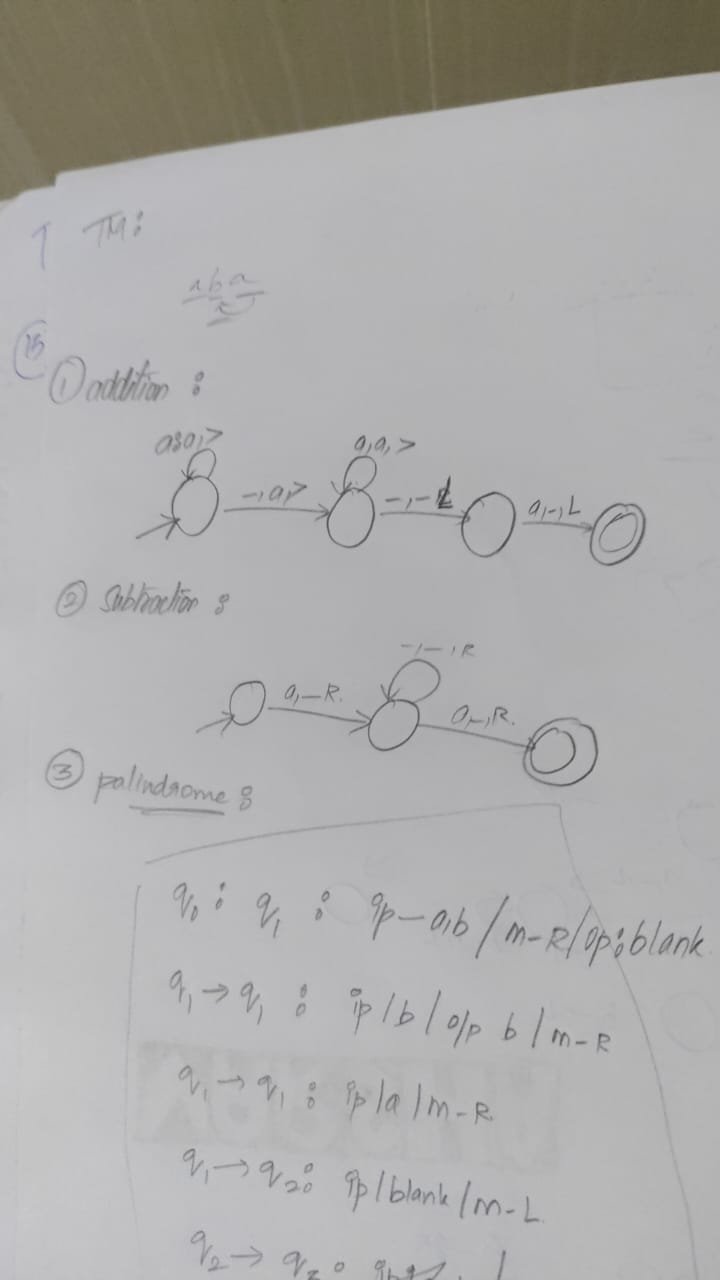 TM:
aba
15
① addition :
a,a,> a,a,>
-,a,> -,-L a,-,L
② Subtraction :
-,-,R
a,-R. a,-,R.
③ palindrome :
q₀ : q₁ : ip-a,b/m-R/op:blank
q₁→q₁ : ip/b/o/p b/m-R
q₁→q₁ : ip/a/m-R
q₁→q₂: ip/blank/m-L
q₂→